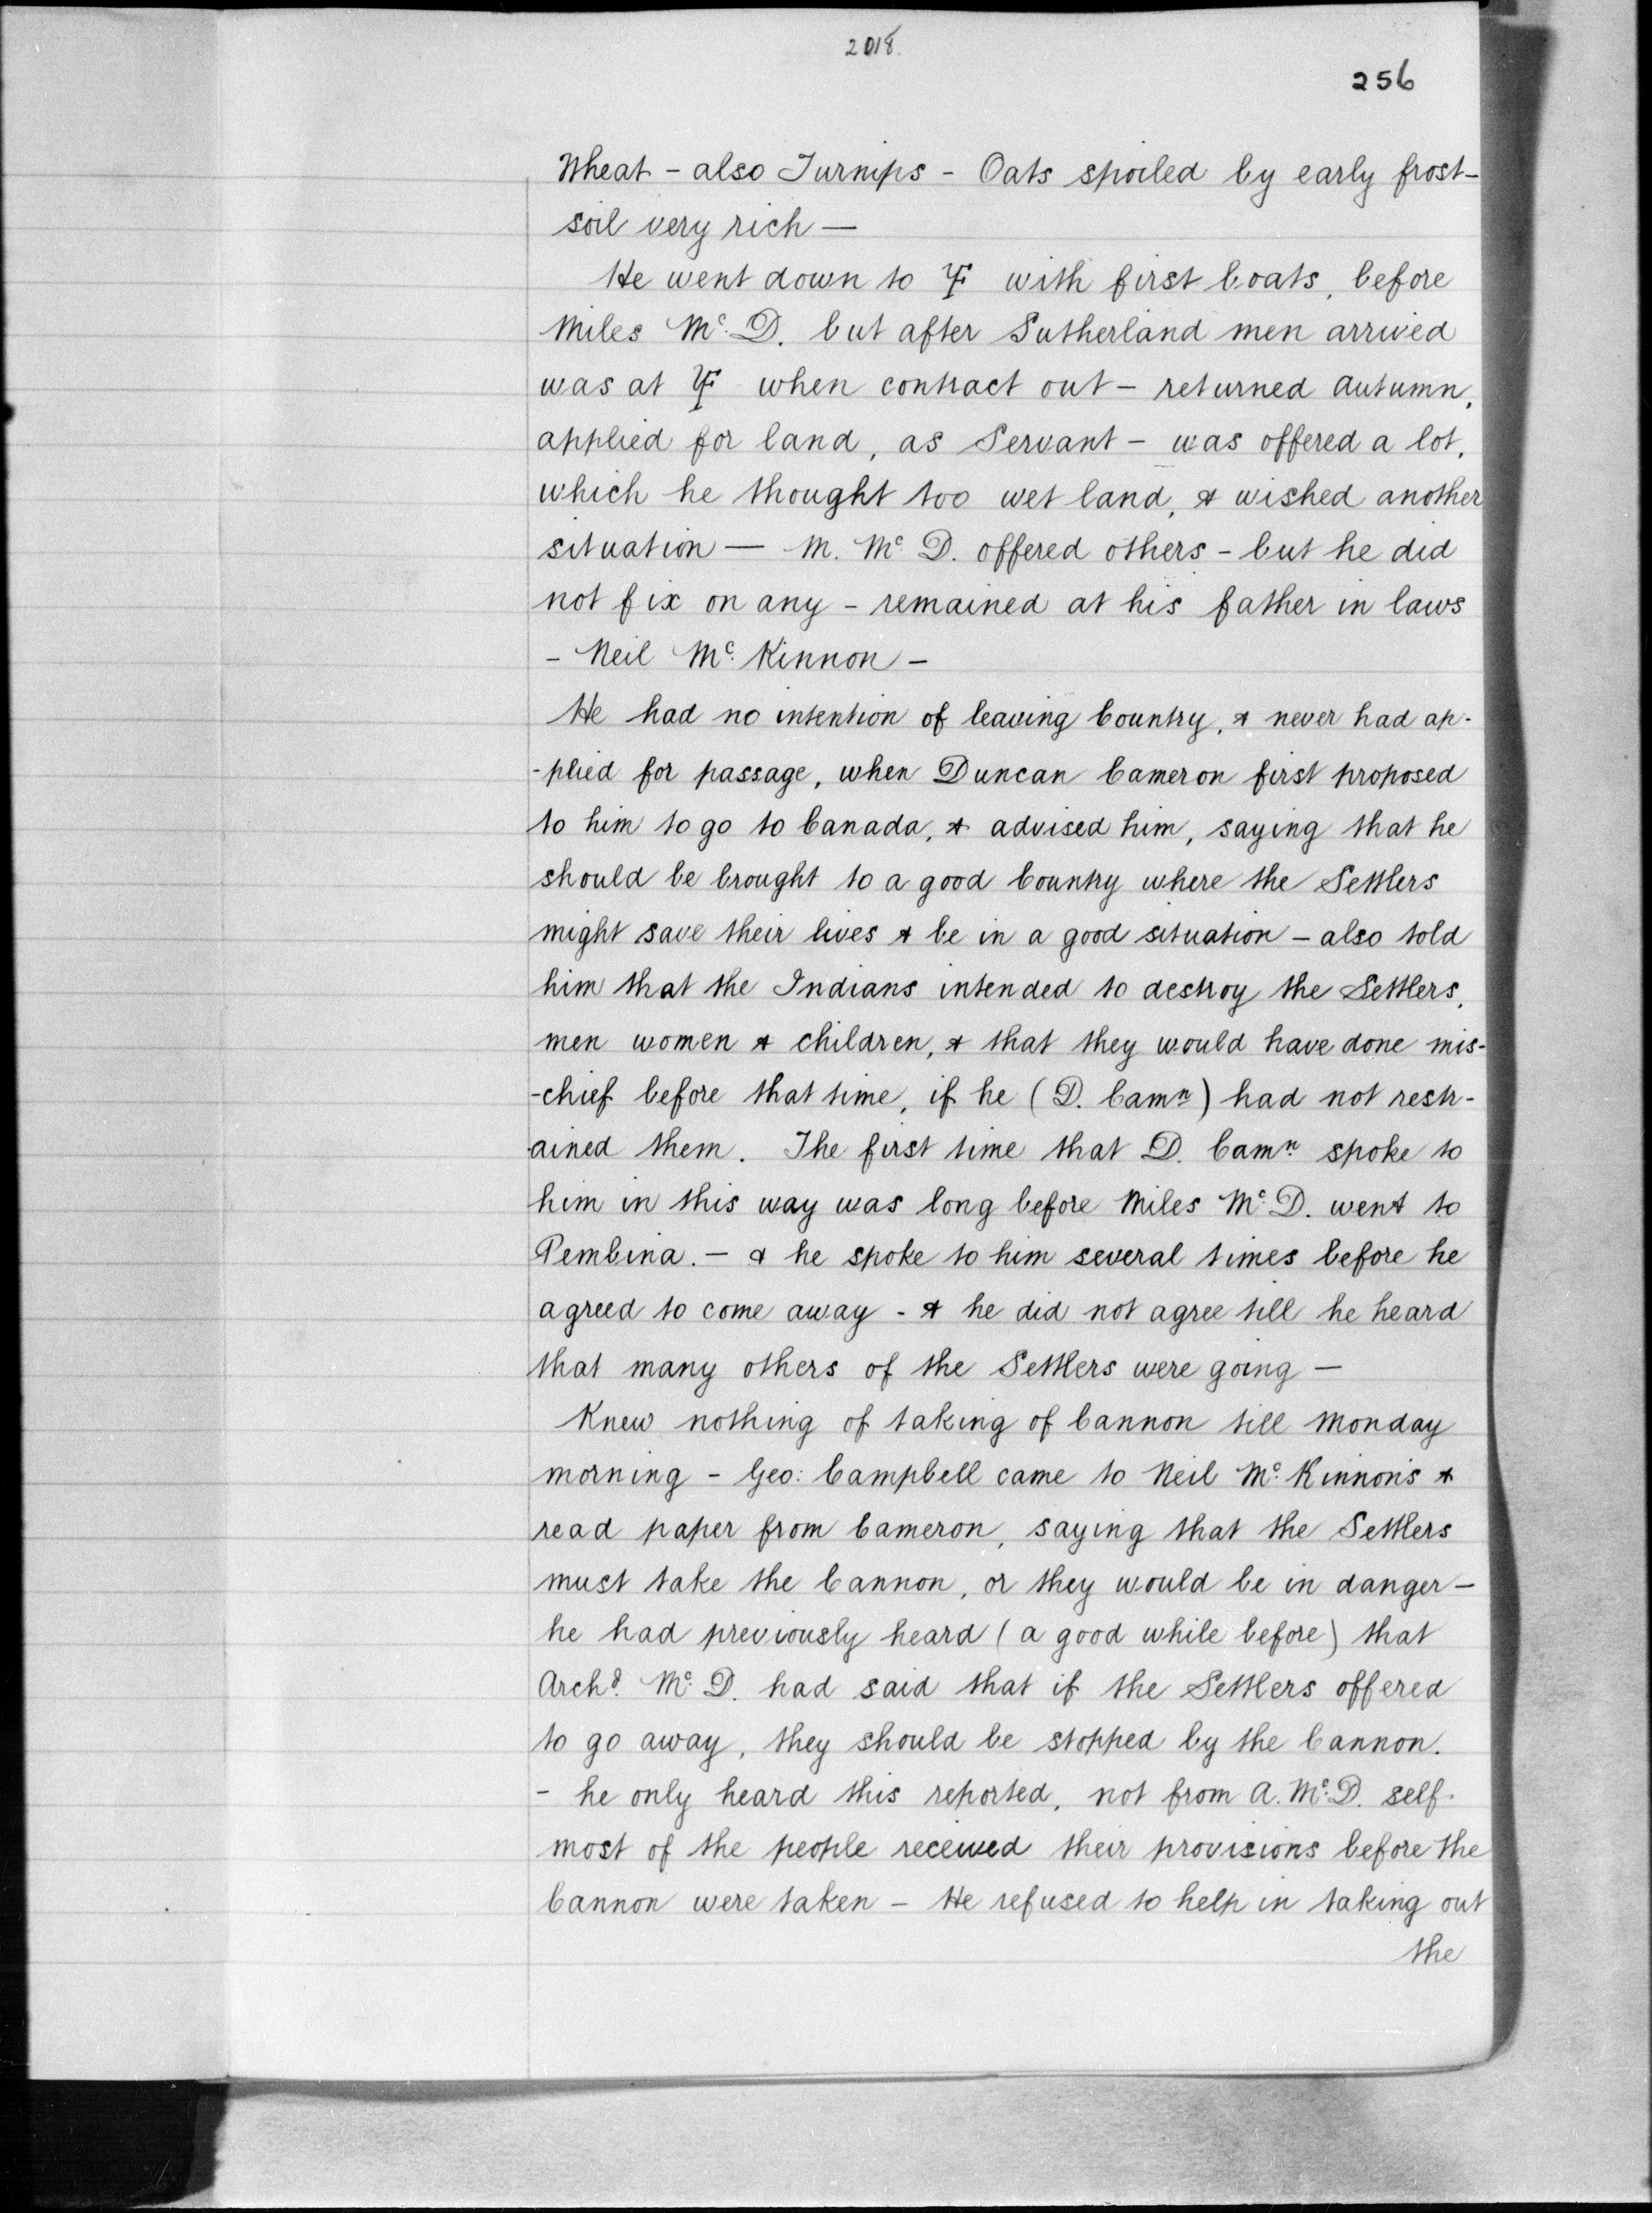 2018.
256
Wheat - also Turnips - Oats spoiled by early frost -
soil very rich —
He went down to YF with first boats, before
Miles Mc. D. but after Sutherland men arrived
was at YF when contract out - returned Autumn,
applied for land, as Servant - was offered a lot,
which he thought too wet land, & wished another
situation — M. Mc D. offered others - but he did
not fix on any - remained at his father in laws
- Neil Mc. Kinnon -
He had no intention of leaving Country, & never had ap-
-plied for passage, when Duncan Cameron first proposed
to him to go to Canada, & advised him, saying that he
should be brought to a good Country where the Settlers
might save their lives & be in a good situation - also told
him that the Indians intended to destroy the Settlers,
men women & children, & that they would have done mis-
-chief before that time, if he (D. Camn) had not restr-
-ained them. The first time that D. Camn. spoke to
him in this way was long before Miles Mc. D. went to
Pembina. - & he spoke to him several times before he
agreed to come away - & he did not agree till he heard
that many others of the Settlers were going —
Knew nothing of taking of Cannon till Monday
morning - Geo: Campbell came to Neil Mc. Kinnon's &
read paper from Cameron, saying that the Settlers
must take the Cannon, or they would be in danger -
he had previously heard (a good while before) that
Archd. Mc. D. had said that if the Settlers offered
to go away, they should be stopped by the Cannon.
- he only heard this reported, not from A. Mc. D. self.
most of the people received their provisions before the
Cannon were taken - He refused to help in taking out
the